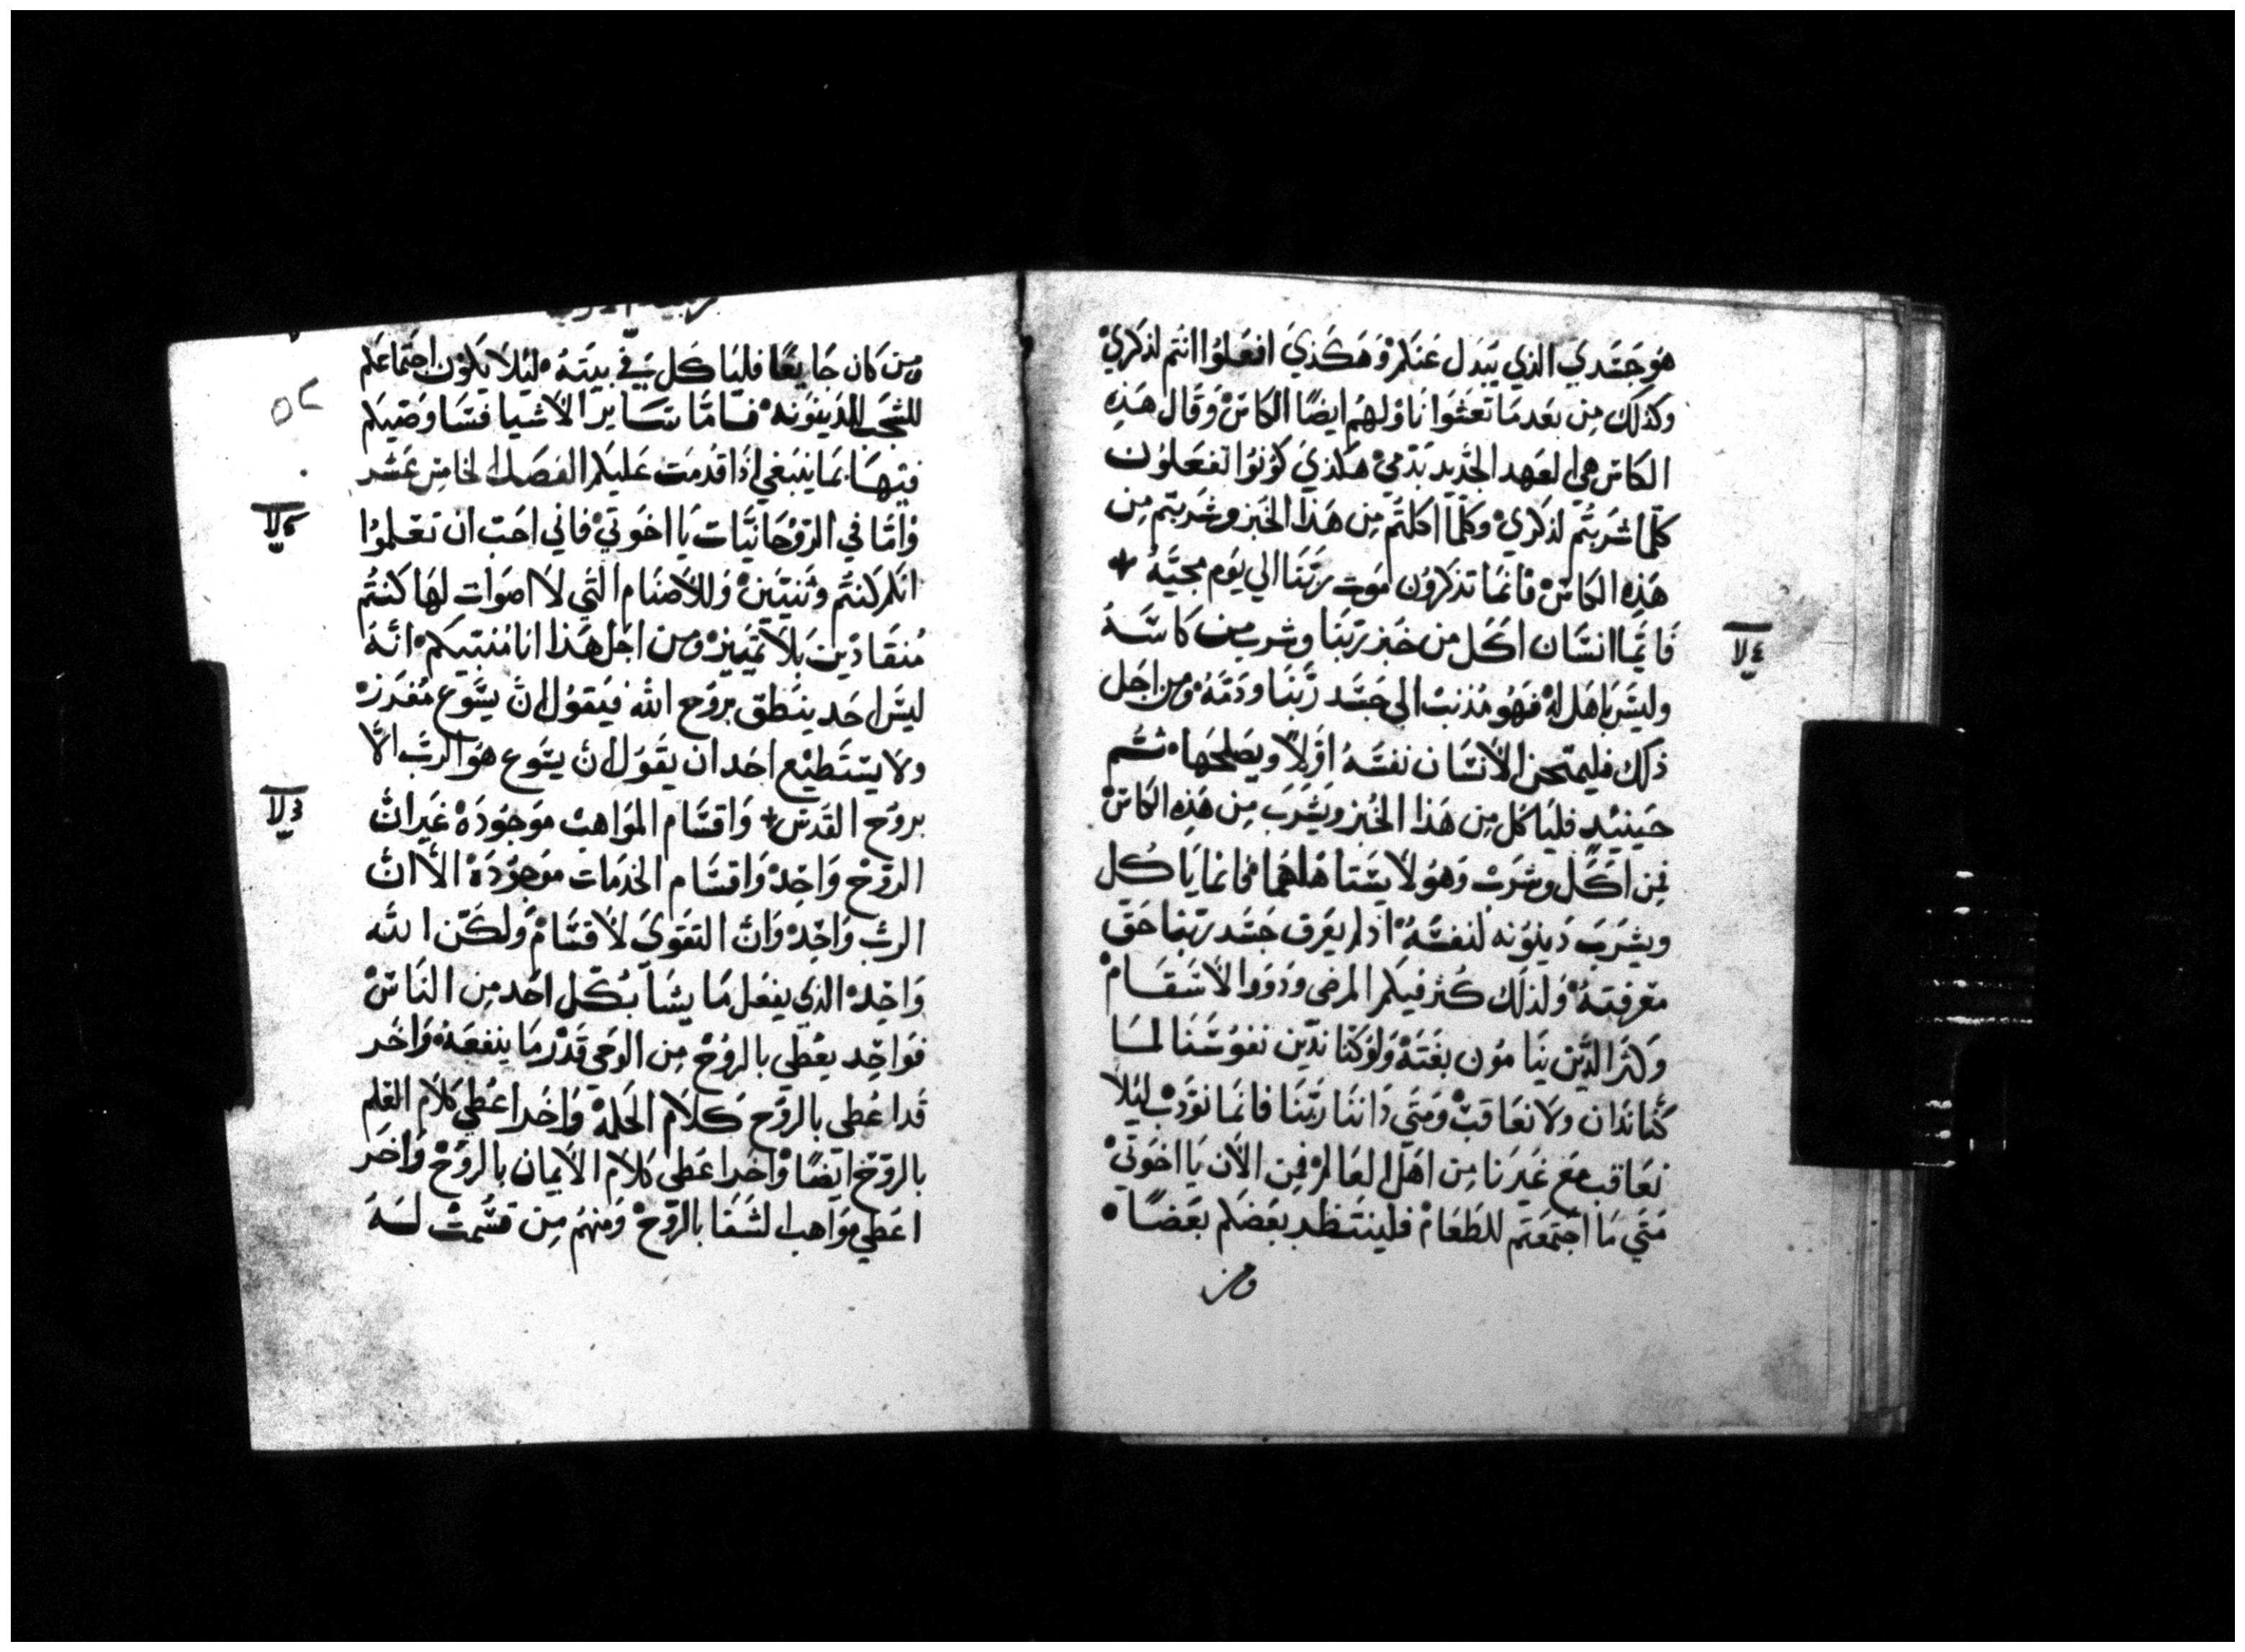 هو جسدي الذي يبدل عنكم وهكذي افعلوا انتم لذكري
وكذلك من بعد ما تعشوا ناولهم ايضًا الكاس وقال هذه
الكاس هي العهد الجديد بدمي هكذي كونوا تفعلون
كلما شربتم لذكري وكلما اكلتم من هذا الخبز وشربتم من
هذه الكاس فانما تذكرون موت ربنا الي يوم مجيه +
فايما انسان اكل من خبز ربنا وشرب من كاسه
وليس باهل له فهو مذنب الى جسد ربنا ودمه ومن اجل
ذلك فليمتحن الانسان نفسه اولًا ويصلحها ثم
حينيذٍ فلياكل من هذا الخبز ويشرب من هذه الكاس
فمن اكل وشرب وهو لا يستاهلهما فانما ياكل
ويشرب دينونه لنفسه اذ لم يعرف جسد ربنا حق
معرفته ولذلك كثر فيكم المرضى وذووا الاسقام
وكثر الذين ينامون بغتة ولو كنا ندين نفوسنا لما
كنا ندان ولا نعاقب ومتي داننا ربنا فانما نودب ليلا
نعاقب مع غيرنا من اهل العالم فمن الان يا اخوتي
متي ما اجتمعتم للطعام فلينتظر بعضكم بعضًا
ومن
٤ لا
ومن كان جايعًا فلياكل في بيته ليلا يكون اجتماعكم
للشجب للدينونه فاما ساير الاشيا فساوصيكم
فيها بما ينبغي اذا قدمت عليكم الفصل الخامس عشر
واما في الروحانيات يا اخوتي فاني احب ان تعلموا
انكم كنتم وثنيين وللاصنام التي لا اصوات لها كنتم
منقادين بلا تمييز ومن اجل هذا انا منبيكم انه
ليس احد ينطق بروح الله فيقول ان يسوع مفرز
ولا يستطيع احد ان يقول ان يسوع هو الرب الا
بروح القدس + واقسام المواهب موجودة غير ان
الروح واحد واقسام الخدمات موجودة الا ان
الرب واحد وان القوي لاقسام ولكن الله
واحد الذي يفعل ما يشا بكل احد من الناس
فواحد يعطي بالروح من الوحي قدر ما ينفعه واخر
قد اعطي بالروح كلام الحكمة واخر اعطي كلام العلم
بالروح ايضًا واخر اعطي كلام الايمان بالروح واخر
اعطي مواهب الشفا بالروح ومنهم من قسمت له